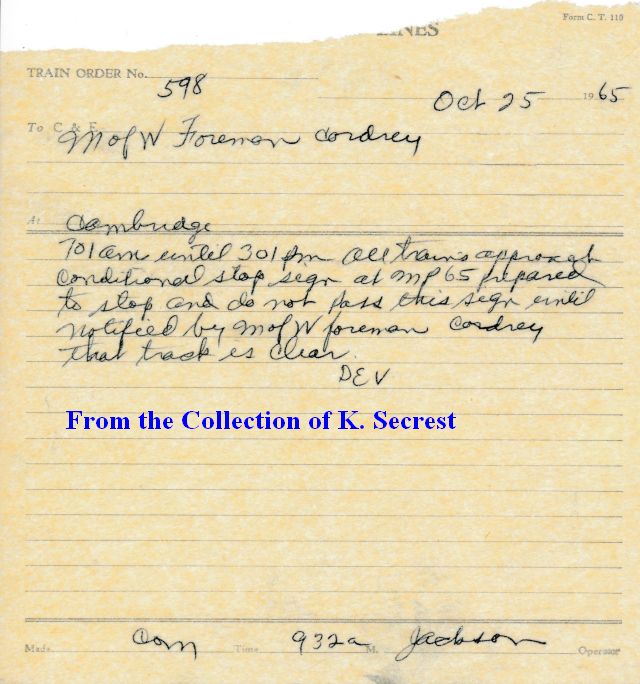 LINES
Form C. T. 110
TRAIN ORDER No. 598
Oct 25 1965
To C & E
M of W Foreman Cordrey
At Cambridge
701 am until 301 pm all trains approach
Conditional stop sign at MP 65 prepared
to stop and do not pass this sign until
notified by M of W foreman Cordrey
that track is clear.
DEV
From the Collection of K. Secrest
Made Com Time 932a M. Jackson Operator